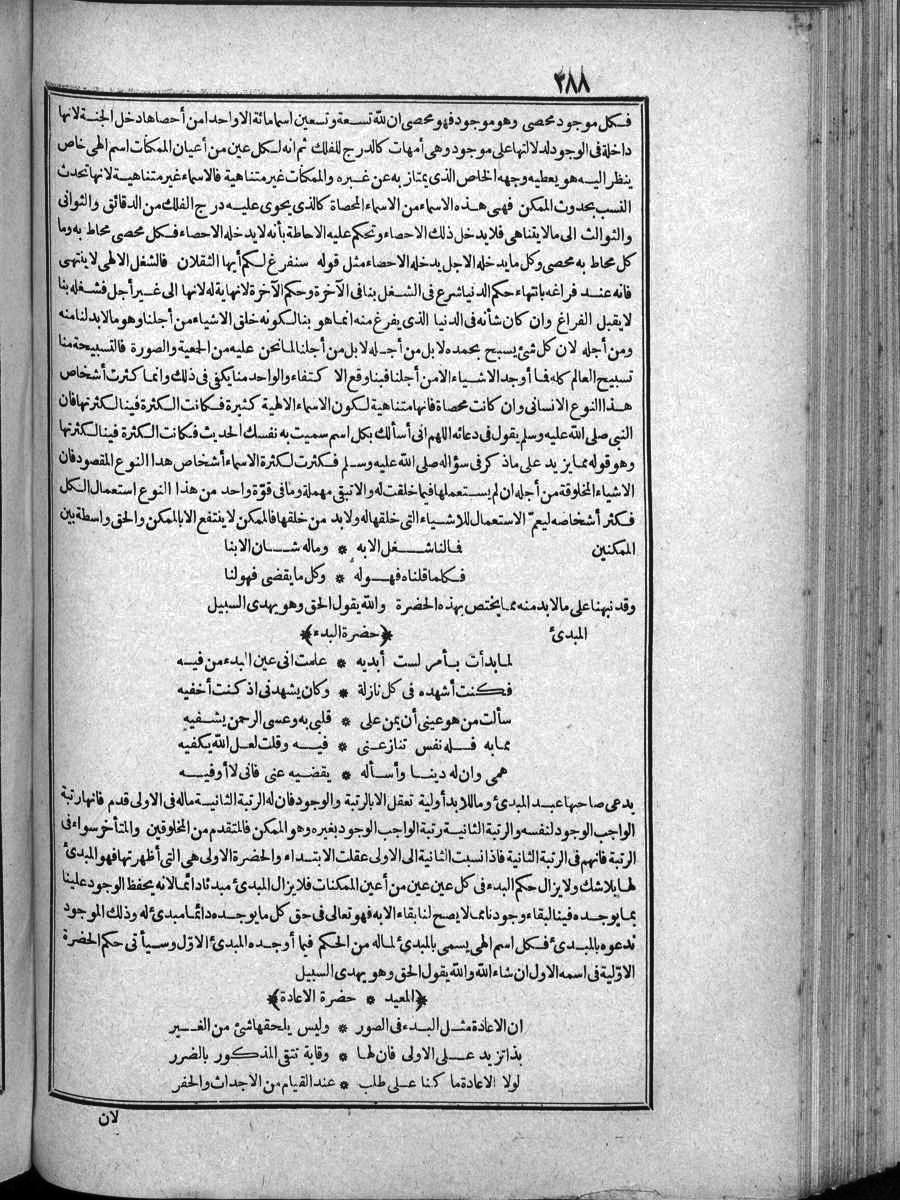 ٢٨٨
فكل موجود محصى وهو موجود فهو محصى ان لله تسعة وتسعين اسما مائة الا واحدا من أحصاها دخل الجنة لانها
داخلة فى الوجود لدلالتها على موجود وهى أمهات كالدرج للفلك ثم انه لكل عين من أعيان الممكنات اسم الهى خاص
ينظر اليه هو يعطيه وجهه الخاص الذى يمتاز به عن غيره والممكنات غير متناهية فالاسماء غير متناهية لانها تحدث
النسب بحدوث الممكن فهى هذه الاسماء من الاسماء المحصاة كالذى يحوى عليه درج الفلك من الدقائق والثوانى
والثوالث الى ما لا يتناهى فلا يدخل ذلك الاحصاء وتحكم عليه الاحاطة بأنه لا يدخله الاحصاء فكل محصى محاط به وما
كل محاط به محصى وكل ما يدخله الاجل يدخله الاحصاء مثل قوله سنفرغ لكم أيها الثقلان فالشغل الالهى لا ينتهى
فانه عند فراغه بانتهاء حكم الدنيا شرع فى الشغل بنا فى الآخرة وحكم الآخرة لا نهاية له لانها الى غير أجل فشغله بنا
لا يقبل الفراغ وان كان شأنه فى الدنيا الذى يفرغ منه انما هو بنا لكونه خلق الاشياء من أجلنا وهو ما لا بد لنا منه
ومن أجله لان كل شئ يسبح بحمده لا بل من أجله لا بل من أجلنا لما نحن عليه من الجمعية والصورة فالتسبيحة منا
تسبيح العالم كله فما أوجد الاشياء الا من أجلنا فبنا وقع الا كتفاء والواحد منا يكفى فى ذلك وانما كثرت أشخاص
هذا النوع الانسانى وان كانت محصاة فانها متناهية لكون الاسماء الالهية كثيرة فكانت الكثرة فينا لكثرتها فان
النبى صلى الله عليه وسلم يقول فى دعائه اللهم انى أسألك بكل اسم سميت به نفسك الحديث فكانت الكثرة فينا لكثرتها
وهو قوله مما يزيد على ما ذكر فى سؤاله صلى الله عليه وسلم فكثرت لكثرة الاسماء أشخاص هذا النوع المقصود فان
الاشياء المخلوقة من أجله ان لم يستعملها فيما خلقت له والا تبقى مهملة وما فى قوّة واحد من هذا النوع استعمال الكل
فكثر أشخاصه ليعمّ الاستعمال للاشياء التى خلقها له ولا بد من خلقها فالممكن لا ينتفع الا بالممكن والحق واسطة بين
الممكنين فالنا شغل الا به * وماله شان الا بنا
فكلما قلناه فهوله * وكل ما يقضى فهو لنا
وقد نبهنا على ما لا بد منه مما يختص بهذه الحضرة والله يقول الحق وهو يهدى السبيل
المبدئ ﴿حضرة البدء﴾
لما بدأت بأمر لست أبديه * علمت انى عين البدء من فيه
فكنت أشهده فى كل نازلة * وكان يشهدنى اذ كنت أخفيه
سألت من هو عينى أن يمن على * قلبى به وعسى الرحمن يشفيه
مما به فله نفس تنازعنى * فيه وقلت لعل الله يكفيه
همى وان له دينا وأسأله * يقضيه عنى فانى لا أوفيه
يدعى صاحبها عبد المبدئ وما للابد أولية تعقل الا بالرتبة والوجود فان له الرتبة الثانية ماله فى الاولى قدم فانها رتبة
الواجب الوجود لنفسه والرتبة الثانية رتبة الواجب الوجود بغيره وهو الممكن فالمتقدم من المخلوقين والمتأخر سواء فى
الرتبة فانهم فى الرتبة الثانية فاذا نسبت الثانية الى الاولى عقلت الابتداء والحضرة الاولى هى التى أظهرتها فهو المبدئ
لها بلا شك ولا يزال حكم البدء فى كل عين عين من أعين الممكنات فلا يزال المبدئ مبدئا دائما لانه يحفظ الوجود علينا
بما يوجده فينا لبقاء وجودنا مما لا يصح لنا بقاء الا به فهو تعالى فى حق كل ما يوجده دائما مبدئ له وذلك الموجود
تدعوه بالمبدئ فكل اسم الهى يسمى بالمبدئ لما له من الحكم فيما أوجده المبدئ الاوّل وسيأتى حكم الحضرة
الاوّلية فى اسمه الاول ان شاء الله والله يقول الحق وهو يهدى السبيل
﴿المعيد * حضرة الاعادة﴾
ان الاعادة مثل البدء فى الصور * وليس يلحقها شئ من الغير
بذا تزيد على الاولى فان لها * وقاية تتقى المذكور بالضرر
لولا الاعادة ما كنا على طلب * عند القيام من الاجداث والحفر
لان